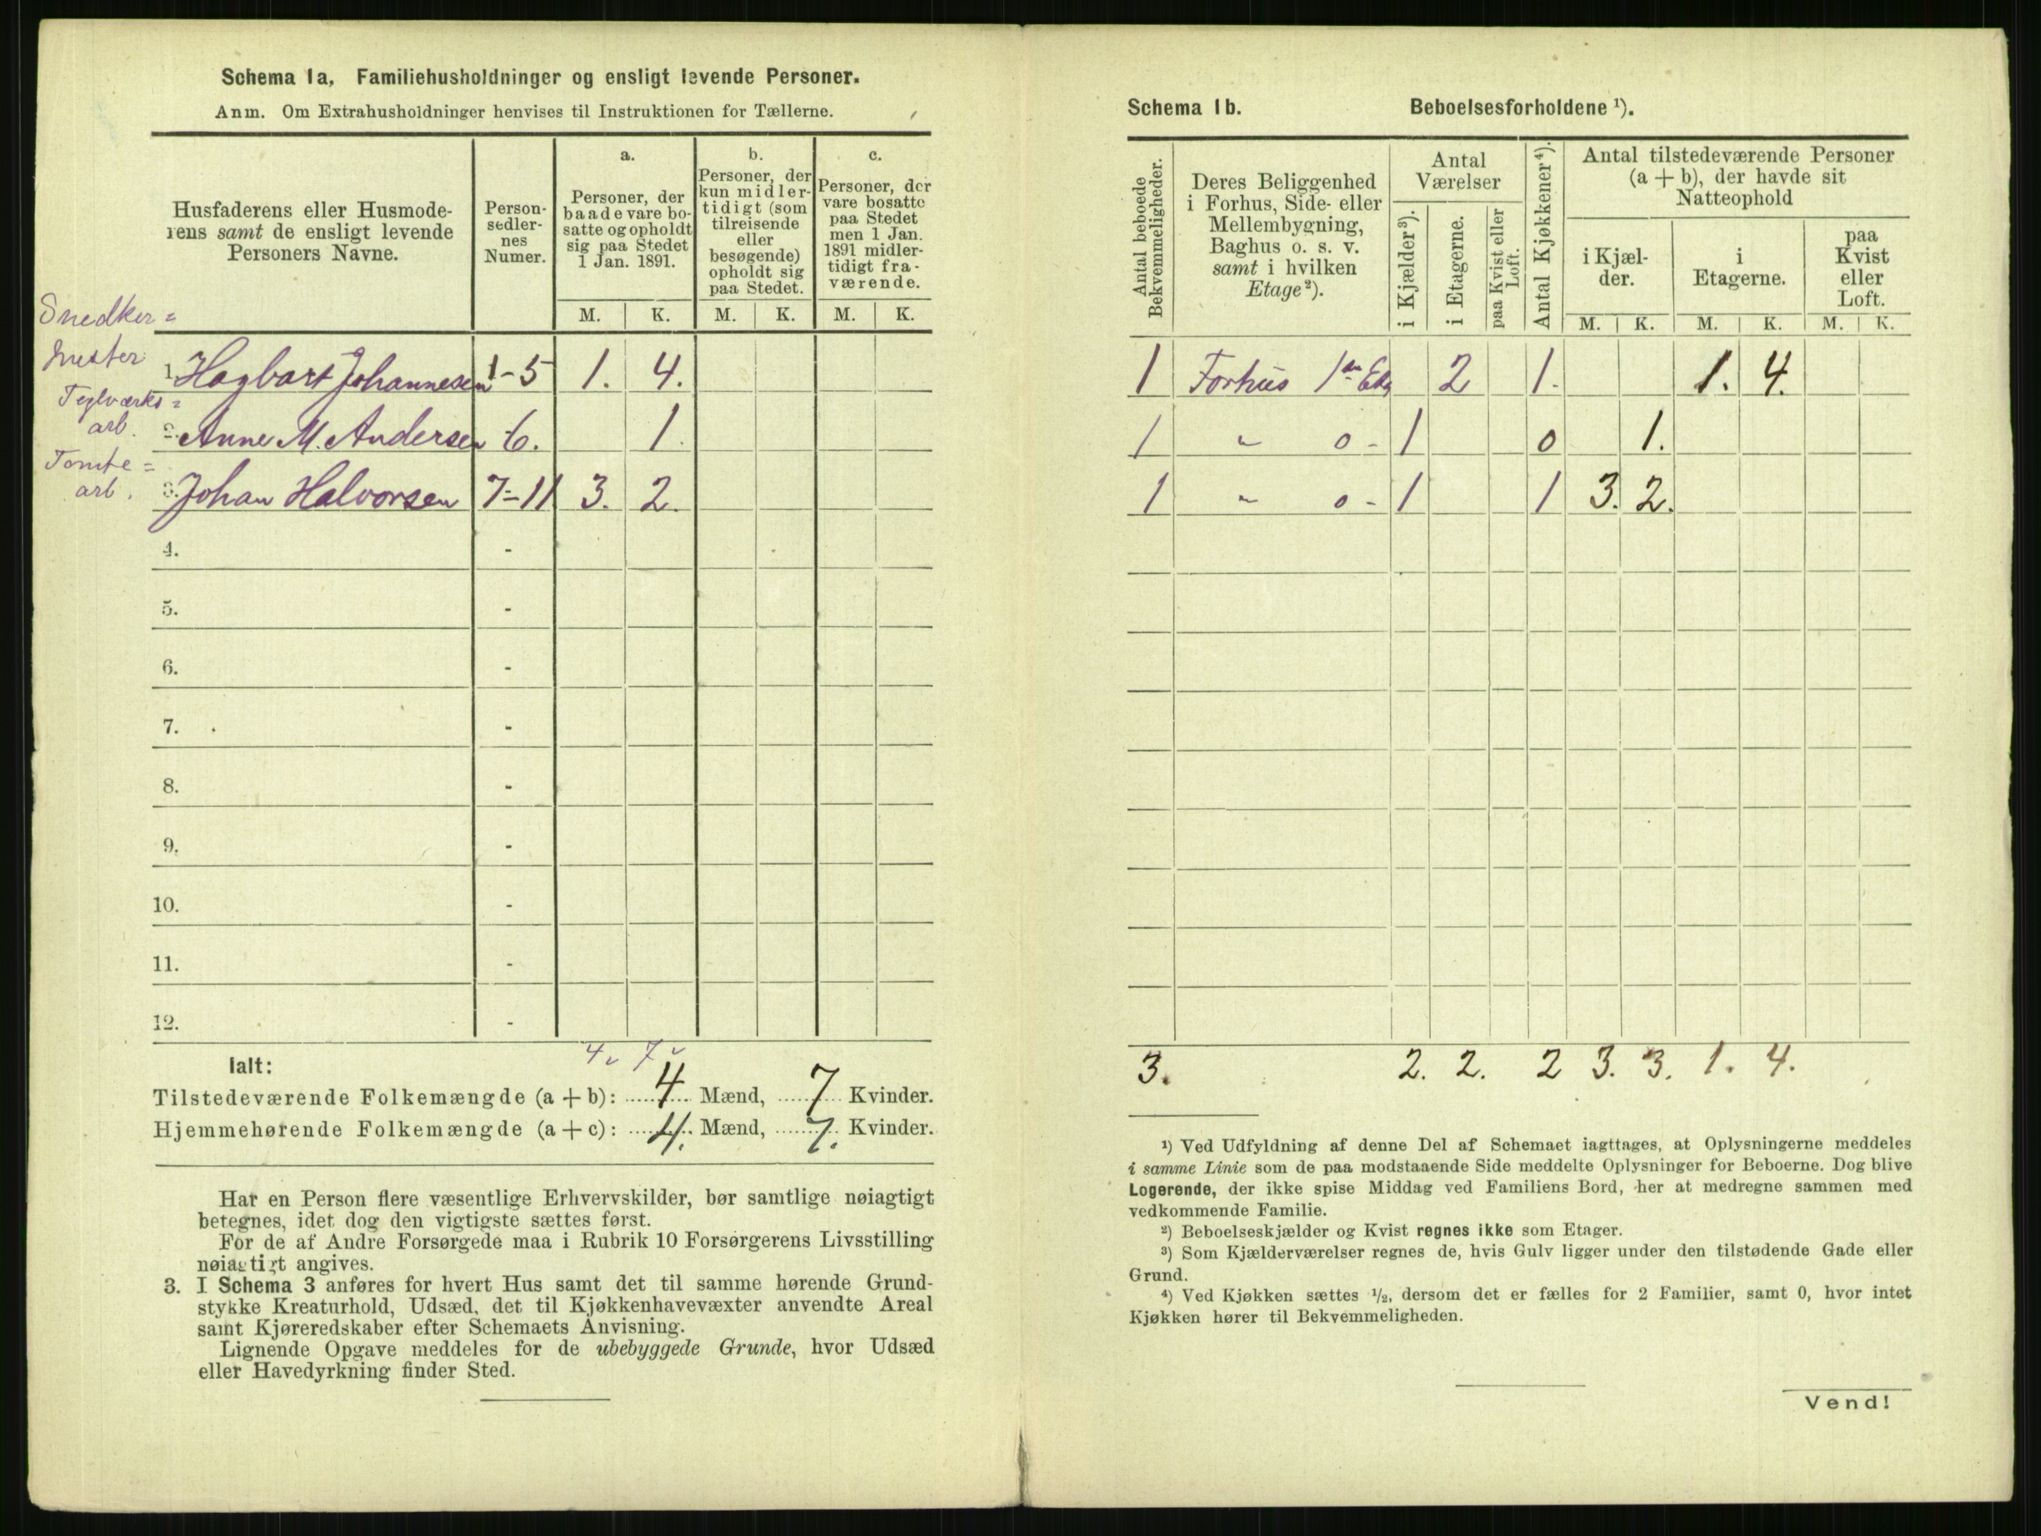 Schema 1a, Familiehusholdninger og ensligt levende Personer.
Anm. Om Extrahusholdninger henvises til Instruktionen for Tællerne.
Husfaderens eller Husmode-
rens samt de ensligt levende
Personers Navne.
Person-
sedler-
nes
Numer.
a.
Personer, der
baade vare bo-
satte og opholdt
sig paa Stedet
1 Jan. 1891.
b.
Personer, der
kun midler-
tidigt (som
tilreisende
eller
besøgende)
opholdt sig
paa Stedet.
c.
Personer, der
vare bosatte
paa Stedet
men 1 Jan.
1891 midler-
tidigt fra-
værende.
M. K. M. K. M. K.
Snedker=
mester
1. Hagbart Johannesen 1-5 1. 4.
Teglværks=
arb.
2. Anne M. Andersen -6. 1.
Tomte=
arb.
3. Johan Halvorsen 7-11 3. 2.
4. -
5. -
6. -
7. -
8. -
9. -
10. -
11. -
12. -
4 7
Ialt:
Tilstedeværende Folkemængde (a + b): 4 Mænd, 7 Kvinder.
Hjemmehørende Folkemængde (a + c): 4. Mænd, 7. Kvinder.
Har en Person flere væsentlige Erhvervskilder, bør samtlige nøiagtigt
betegnes, idet dog den vigtigste sættes først.
For de af Andre Forsørgede maa i Rubrik 10 Forsørgerens Livsstilling
nøiagtigt angives.
3. I Schema 3 anføres for hvert Hus samt det til samme hørende Grund-
stykke Kreaturhold, Udsæd, det til Kjøkkenhavevæxter anvendte Areal
samt Kjøreredskaber efter Schemaets Anvisning.
Lignende Opgave meddeles for de ubebyggede Grunde, hvor Udsæd
eller Havedyrkning finder Sted.
Schema 1b. Beboelsesforholdene ¹).
Antal beboede
Bekvemmeligheder.
Deres Beliggenhed
i Forhus, Side- eller
Mellembygning,
Baghus o. s. v.
samt i hvilken
Etage ²).
Antal
Værelser
i Kjælder ³).
i Etagerne.
paa Kvist eller
Loft.
Antal Kjøkkener ⁴).
Antal tilstedeværende Personer
(a + b), der havde sit
Natteophold
i Kjæl-
der.
i
Etagerne.
paa
Kvist
eller
Loft.
M. K. M. K. M. K.
1 Forhus 1ste Etg 2 1. 1. 4.
1 " 0 - 1 0 1.
1 " 0 - 1 1 3. 2.
3. 2. 2. 2 3. 3. 1. 4.
¹) Ved Udfyldning af denne Del af Schemaet iagttages, at Oplysningerne meddeles
i samme Linie som de paa modstaaende Side meddelte Oplysninger for Beboerne. Dog blive
Logerende, der ikke spise Middag ved Familiens Bord, her at medregne sammen med
vedkommende Familie.
²) Beboelseskjælder og Kvist regnes ikke som Etager.
³) Som Kjælderværelser regnes de, hvis Gulv ligger under den tilstødende Gade eller
Grund.
⁴) Ved Kjøkken sættes ½, dersom det er fælles for 2 Familier, samt 0, hvor intet
Kjøkken hører til Bekvemmeligheden.
Vend!